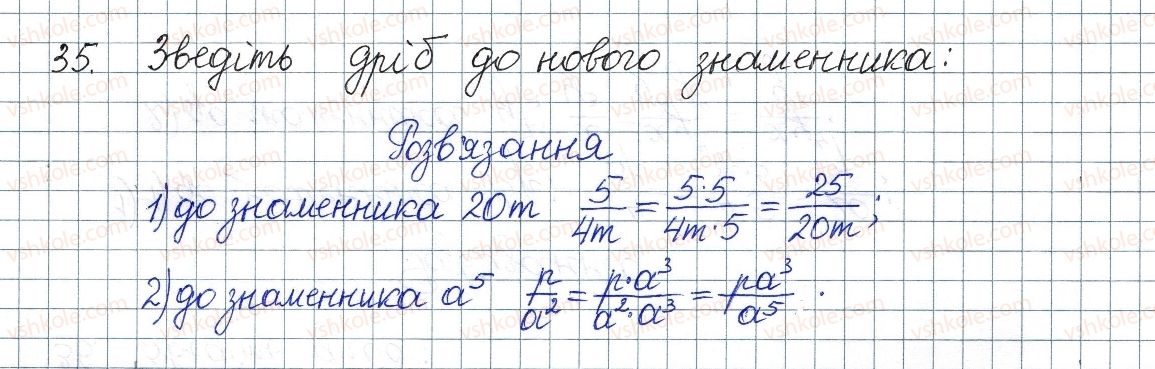 35. Зведіть дріб до нового знаменника:
Розв'язання
1) до знаменника 20m 5/4m = 5·5/4m·5 = 25/20m;
2) до знаменника a⁵ p/a² = p·a³/a²·a³ = pa³/a⁵.